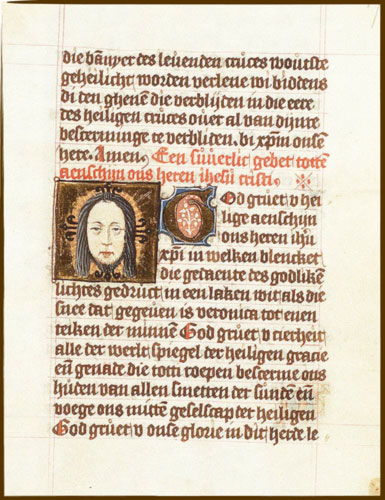 die banyer des leuenden cruces woutste
geheilicht worden verlene wi biddens
di den ghenē die verblijden in die eere
des heiligen cruces ouer al van dijnre
bescermīnge te verbliden. bi xp̄m onsen
here. Amen. Een suuerlic gebet totten
aenschijn ons heren ihesu cristi.
God gruet v hei
lige aenschijn
ons heren ihū
xp̄i in welken blencket
die gedaente des godliken
lichtes gedruct in een laken wit als die
snee dat gegeuen is veronica tot enen
teiken der minnen God gruet v cierheit
alle der werlt spiegel der heiligen gracie
en̄ genade die totti roepen bescerme ons
huden van allen smetten der sunden en̄
voege ons mitten geselscap der heiligen
God gruet v onse glorie in dit herde le